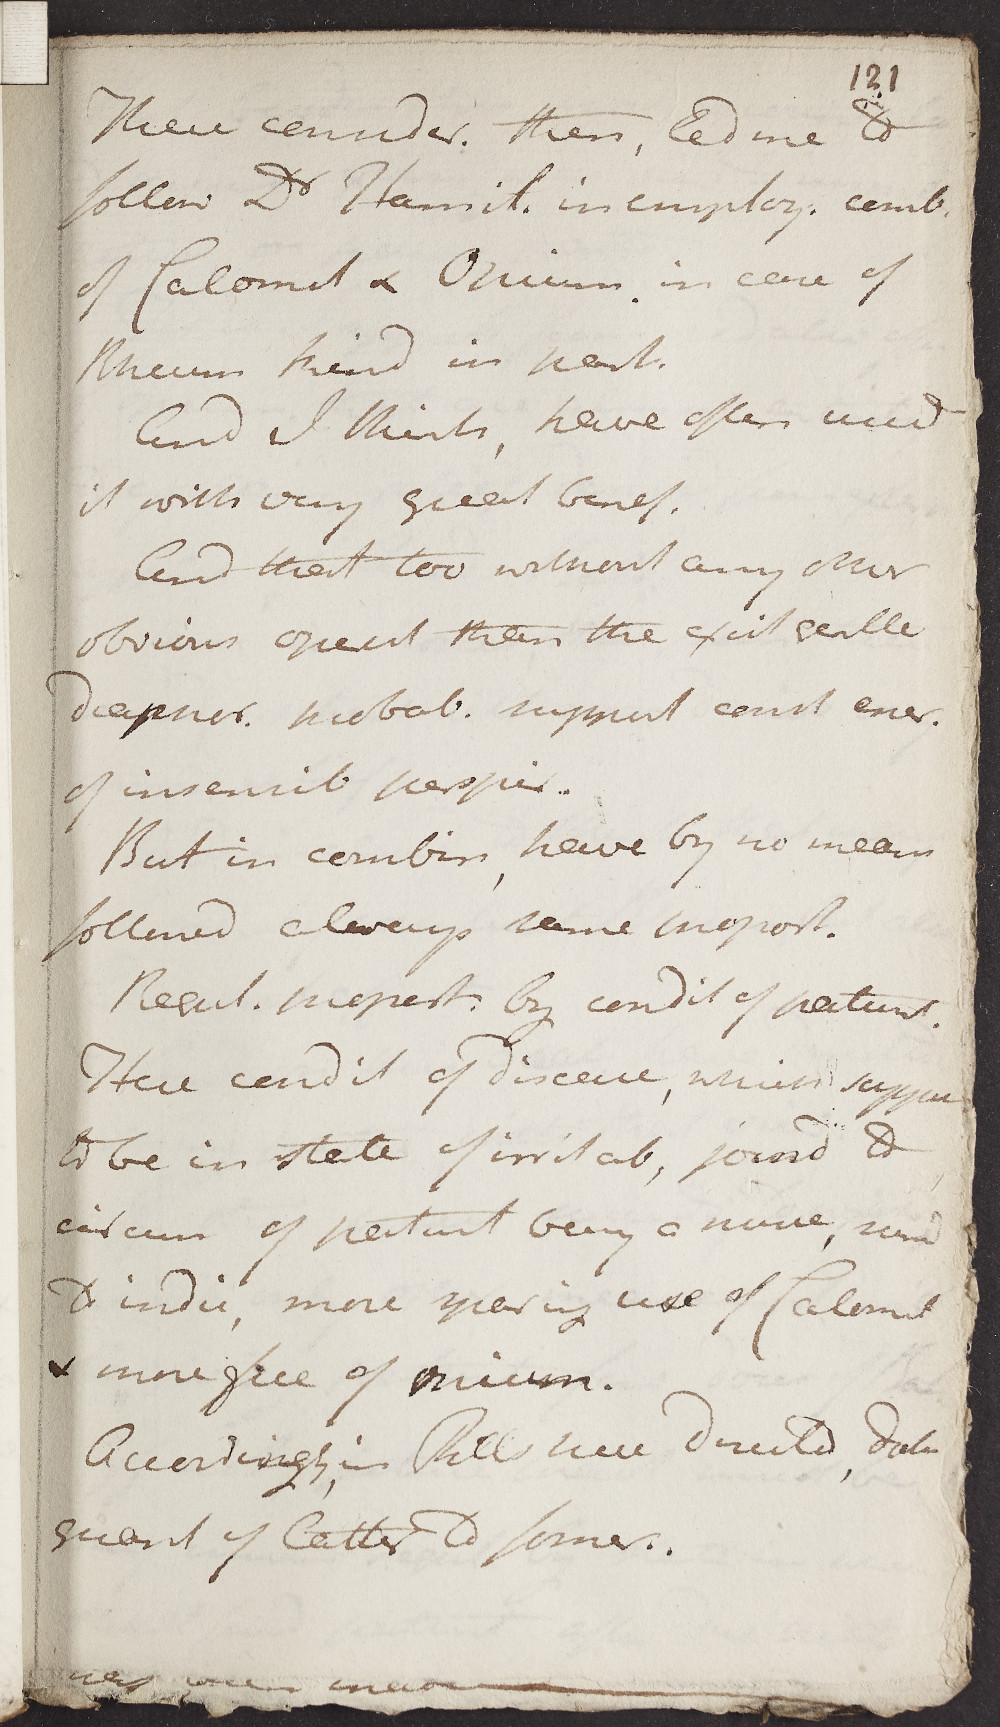 121
These consider. then, led me to
follow Dr Hamil. in employ. comb.
of Calomel & Opium in case of
Rheum kind in part.
And I think, have often used
it with very great benef.
And that too without any other
obvious operat than the excit gentle
diapnor. probab. support const ener.
of insensib perspir.
But in combin, have by no means
followed always same proport.
Regul. proport. by condit of patient.
Here condit of disease, which suppos
to be in state of irritab, joind to
circum of patient being a nurse, seemd
to indic, more sparing use of Calomel
& more free of opium.
Accordingly, in Pills here directed, doub
quant of latter to former.